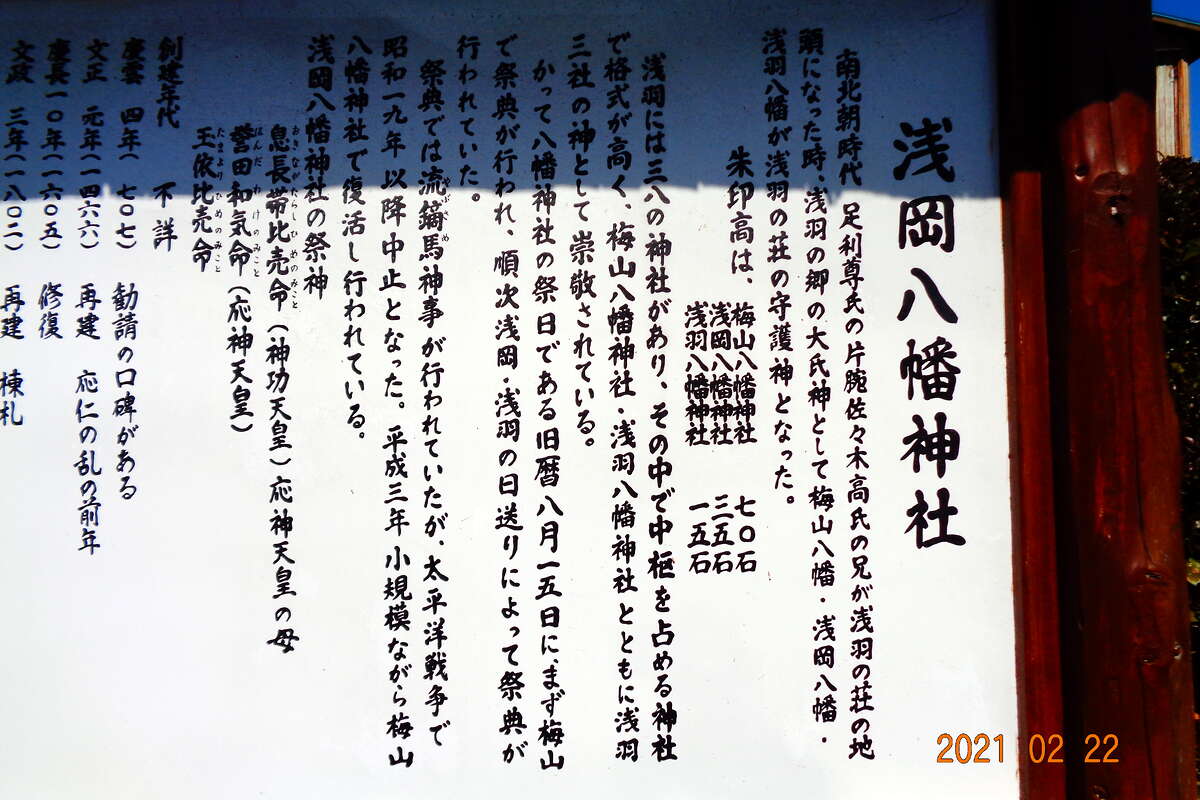 浅岡八幡神社
南北朝時代 足利尊氏の片腕佐々木高氏の兄が浅羽の荘の地
頭になった時、浅羽の郷の大氏神として梅山八幡・浅岡八幡・
浅羽八幡が浅羽の荘の守護神となった。
朱印高は、
梅山八幡神社 七〇石
浅岡八幡神社 三五石
浅羽八幡神社 一五石
浅羽には三八の神社があり、その中で中枢を占める神社
で格式が高く、梅山八幡神社・浅羽八幡神社とともに浅羽
三社の神として崇敬されている。
かって八幡神社の祭日である旧暦八月一五日に、まず梅山
で祭典が行われ、順次浅岡・浅羽の日送りによって祭典が
行われていた。
祭典では流鏑馬神事が行われていたが、太平洋戦争で
昭和一九年以降中止となった。平成三年小規模ながら梅山
八幡神社で復活し行われている。
浅岡八幡神社の祭神
息長帯比売命(神功天皇)応神天皇の母
誉田和気命(応神天皇)
玉依比売命
創建年代 不詳
慶雲 四年( 七〇七) 勧請の口碑がある
文正 元年(一四六六) 再建 応仁の乱の前年
慶長一〇年(一六〇五) 修復
文政 三年(一八〇二) 再建 棟札
2021 02 22